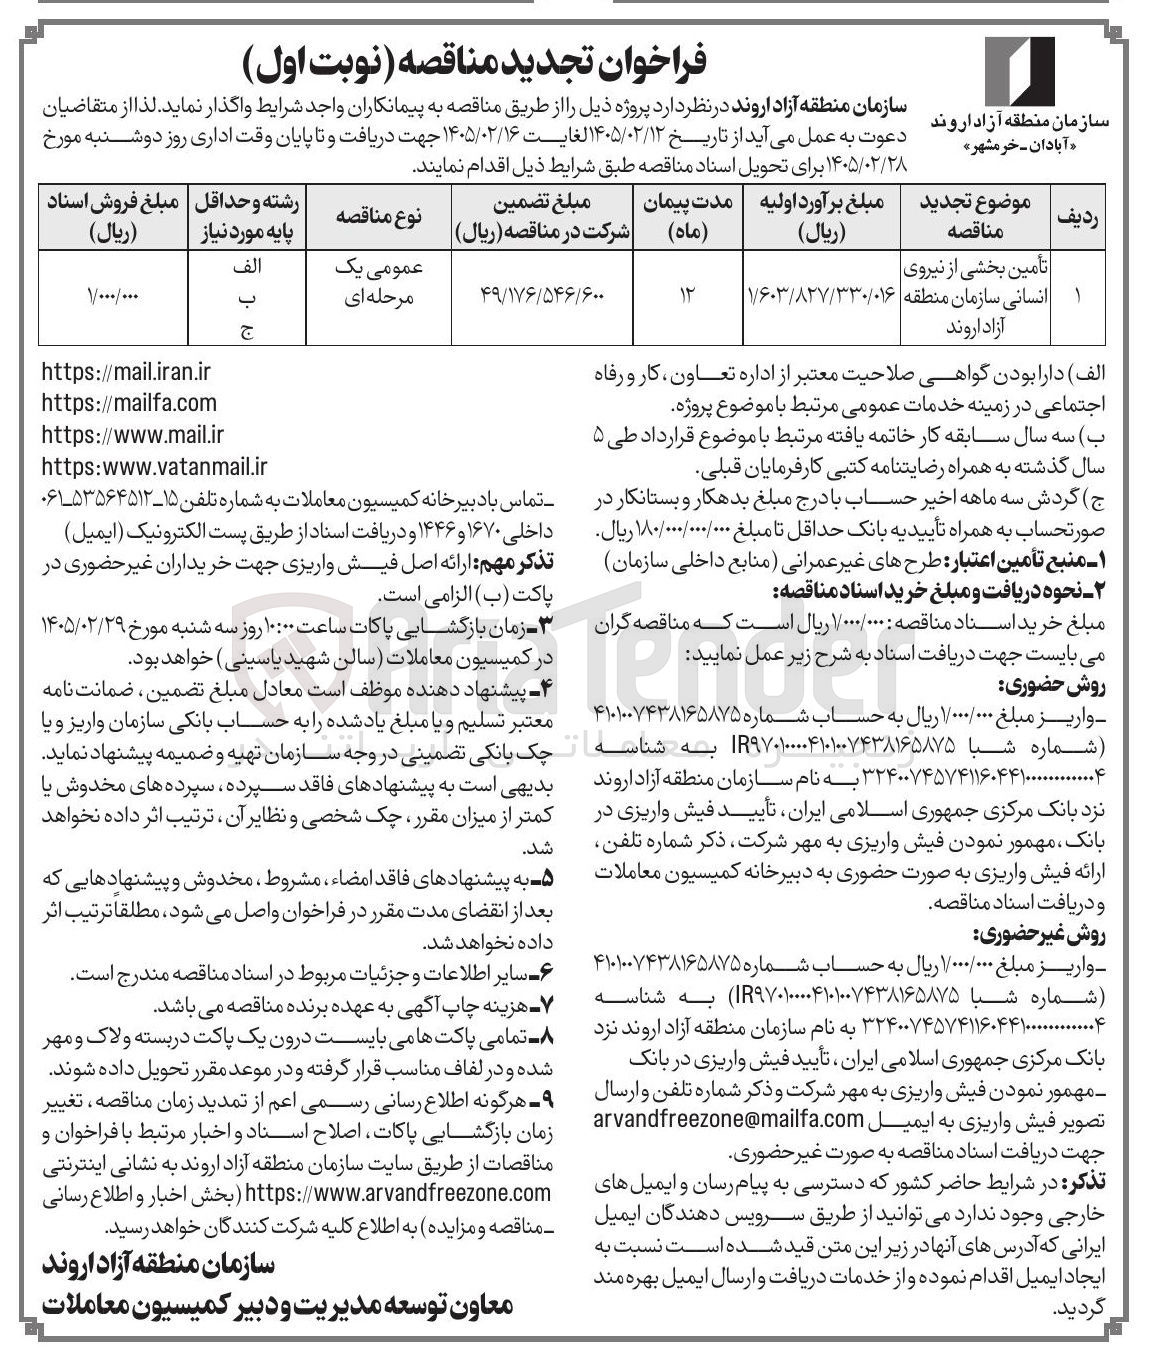 فراخوان تجدید مناقصه (نوبت اول)
سازمان منطقه آزاد اروند
«آبادان - خرمشهر»
سازمان منطقه آزاد اروند در نظر دارد پروژه ذیل را از طریق مناقصه به پیمانکاران واجد شرایط واگذار نماید. لذا از متقاضیان
دعوت به عمل می‌آید از تاریخ ۱۴۰۵/۰۲/۱۲ لغایت ۱۴۰۵/۰۲/۱۶ جهت دریافت و تا پایان وقت اداری روز دوشنبه مورخ
۱۴۰۵/۰۲/۲۸ برای تحویل اسناد مناقصه طبق شرایط ذیل اقدام نمایند.
ردیف | موضوع تجدید مناقصه | مبلغ برآورد اولیه (ریال) | مدت پیمان (ماه) | مبلغ تضمین شرکت در مناقصه (ریال) | نوع مناقصه | رشته و حداقل پایه مورد نیاز | مبلغ فروش اسناد (ریال)
۱ | تأمین بخشی از نیروی انسانی سازمان منطقه آزاد اروند | ۱/۶۰۳/۸۲۷/۳۳۰/۰۱۶ | ۱۲ | ۴۹/۱۷۶/۵۴۶/۶۰۰ | عمومی یک مرحله‌ای | الف ب ج | ۱/۰۰۰/۰۰۰
الف) دارا بودن گواهی صلاحیت معتبر از اداره تعاون، کار و رفاه
اجتماعی در زمینه خدمات عمومی مرتبط با موضوع پروژه.
ب) سه سال سابقه کار خاتمه یافته مرتبط با موضوع قرارداد طی ۵
سال گذشته به همراه رضایتنامه کتبی کارفرمایان قبلی.
ج) گردش سه ماهه اخیر حساب با درج مبلغ بدهکار و بستانکار در
صورتحساب به همراه تأییدیه بانک حداقل تا مبلغ ۱۸۰/۰۰۰/۰۰۰/۰۰۰ ریال.
۱- منبع تأمین اعتبار: طرح‌های غیرعمرانی (منابع داخلی سازمان)
۲- نحوه دریافت و مبلغ خرید اسناد مناقصه:
مبلغ خرید اسناد مناقصه: ۱/۰۰۰/۰۰۰ ریال است که مناقصه گران
می بایست جهت دریافت اسناد به شرح زیر عمل نمایید:
روش حضوری:
- واریز مبلغ ۱/۰۰۰/۰۰۰ ریال به حساب شماره ۴۱۰۱۰۰۷۴۳۸۱۶۵۸۷۵
(شماره شبا IR۹۷۰۱۰۰۰۰۴۱۰۱۰۰۷۴۳۸۱۶۵۸۷۵ به شناسه
به نام سازمان منطقه آزاد اروند
نزد بانک مرکزی جمهوری اسلامی ایران، تأیید فیش واریزی در
بانک، مهمور نمودن فیش واریزی به مهر شرکت، ذکر شماره تلفن،
ارائه فیش واریزی به صورت حضوری به دبیرخانه کمیسیون معاملات
و دریافت اسناد مناقصه.
روش غیرحضوری:
- واریز مبلغ ۱/۰۰۰/۰۰۰ ریال به حساب شماره ۴۱۰۱۰۰۷۴۳۸۱۶۵۸۷۵
(شماره شبا IR۹۷۰۱۰۰۰۰۴۱۰۱۰۰۷۴۳۸۱۶۵۸۷۵) به شناسه
به نام سازمان منطقه آزاد اروند نزد
بانک مرکزی جمهوری اسلامی ایران، تأیید فیش واریزی در بانک
- مهمور نمودن فیش واریزی به مهر شرکت و ذکر شماره تلفن و ارسال
تصویر فیش واریزی به ایمیل arvandfreezone@mailfa.com
جهت دریافت اسناد مناقصه به صورت غیرحضوری.
تذکر: در شرایط حاضر کشور که دسترسی به پیام رسان و ایمیل‌های
خارجی وجود ندارد می توانید از طریق سرویس دهندگان ایمیل
ایرانی که آدرس های آنها در زیر این متن قید شده است نسبت به
ایجاد ایمیل اقدام نموده و از خدمات دریافت و ارسال ایمیل بهره مند
گردید.
https://mail.iran.ir
https://mailfa.com
https://www.mail.ir
https:www.vatanmail.ir
- تماس با دبیرخانه کمیسیون معاملات به شماره تلفن ۱۵-۵۳۵۶۴۵۱۲-۰۶۱
داخلی ۱۶۷۰ و ۱۴۴۶ و دریافت اسناد از طریق پست الکترونیک (ایمیل)
تذکر مهم: ارائه اصل فیش واریزی جهت خریداران غیرحضوری در
پاکت (ب) الزامی است.
۳- زمان بازگشایی پاکات ساعت ۱۰:۰۰ روز سه شنبه مورخ ۱۴۰۵/۰۲/۲۹
در کمیسیون معاملات (سالن شهید یاسینی) خواهد بود.
۴- پیشنهاد دهنده موظف است معادل مبلغ تضمین، ضمانت نامه
معتبر تسلیم و یا مبلغ یاد شده را به حساب بانکی سازمان واریز و یا
چک بانکی تضمینی در وجه سازمان تهیه و ضمیمه پیشنهاد نماید.
بدیهی است به پیشنهادهای فاقد سپرده، سپرده‌های مخدوش یا
کمتر از میزان مقرر، چک شخصی و نظایر آن، ترتیب اثر داده نخواهد
شد.
۵- به پیشنهادهای فاقد امضاء، مشروط، مخدوش و پیشنهادهایی که
بعد از انقضای مدت مقرر در فراخوان واصل می شود، مطلقاً ترتیب اثر
داده نخواهد شد.
۶- سایر اطلاعات و جزئیات مربوط در اسناد مناقصه مندرج است.
۷- هزینه چاپ آگهی به عهده برنده مناقصه می باشد.
۸- تمامی پاکت‌ها می بایست درون یک پاکت دربسته و لاک و مهر
شده و در لفاف مناسب قرار گرفته و در موعد مقرر تحویل داده شوند.
۹- هرگونه اطلاع رسانی رسمی اعم از تمدید زمان مناقصه، تغییر
زمان بازگشایی پاکات، اصلاح اسناد و اخبار مرتبط با فراخوان و
مناقصات از طریق سایت سازمان منطقه آزاد اروند به نشانی اینترنتی
https://www.arvandfreezone.com (بخش اخبار و اطلاع رسانی
- مناقصه و مزایده) به اطلاع کلیه شرکت کنندگان خواهد رسید.
سازمان منطقه آزاد اروند
معاون توسعه مدیریت و دبیر کمیسیون معاملات
AriaTender